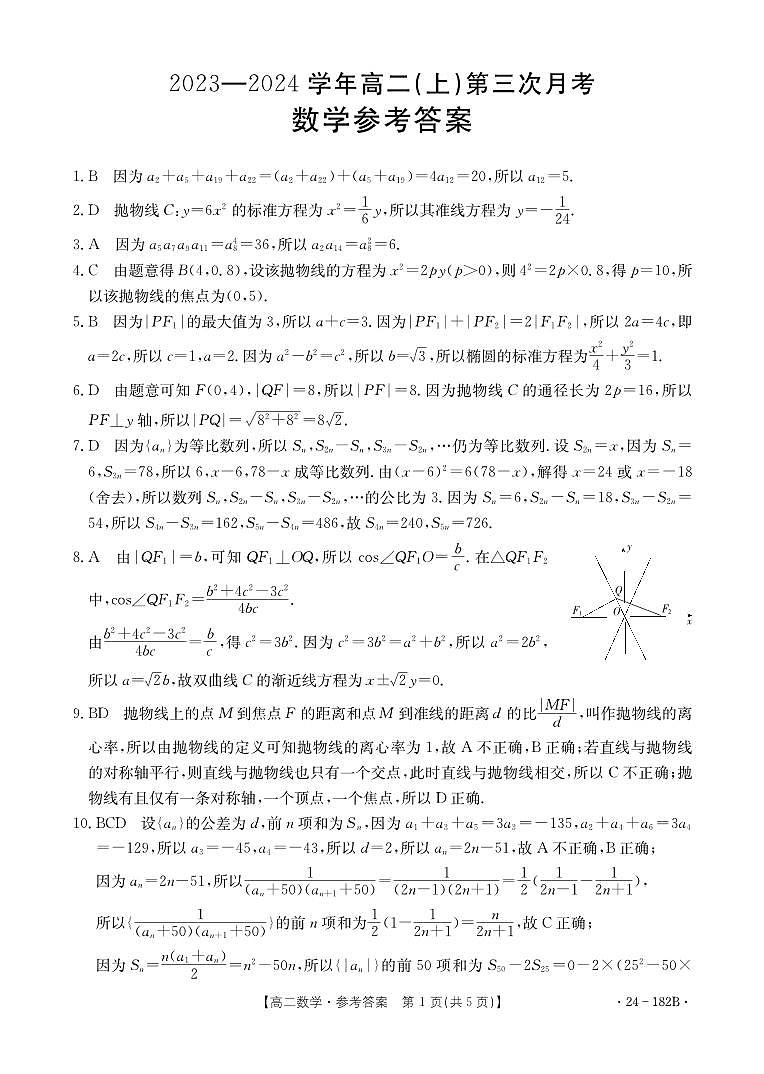 2023—2024 学年高二(上)第三次月考
数学参考答案
1. B 因为 a₂+a₅+a₁₉+a₂₂=(a₂+a₂₂)+(a₅+a₁₉)=4a₁₂=20,所以 a₁₂=5.
2. D 抛物线 C:y=6x² 的标准方程为 x²=1/6 y,所以其准线方程为 y=-1/24.
3. A 因为 a₅a₇a₉a₁₁=a₈⁴=36,所以 a₂a₁₄=a₈²=6.
4. C 由题意得 B(4,0.8),设该抛物线的方程为 x²=2py(p>0),则 4²=2p×0.8,得 p=10,所
以该抛物线的焦点为(0,5).
5. B 因为|PF₁|的最大值为 3,所以 a+c=3. 因为|PF₁|+|PF₂|=2|F₁F₂|,所以 2a=4c,即
a=2c,所以 c=1,a=2. 因为 a²-b²=c²,所以 b=√3,所以椭圆的标准方程为x²/4+y²/3=1.
6. D 由题意可知 F(0,4),|QF|=8,所以|PF|=8. 因为抛物线 C 的通径长为 2p=16,所以
PF⊥y 轴,所以|PQ|=√(8²+8²)=8√2.
7. D 因为{aₙ}为等比数列,所以 Sₙ,S₂ₙ-Sₙ,S₃ₙ-S₂ₙ,…仍为等比数列. 设 S₂ₙ=x,因为 Sₙ=
6,S₃ₙ=78,所以 6,x-6,78-x 成等比数列. 由(x-6)²=6(78-x),解得 x=24 或 x=-18
(舍去),所以数列 Sₙ,S₂ₙ-Sₙ,S₃ₙ-S₂ₙ,…的公比为 3. 因为 Sₙ=6,S₂ₙ-Sₙ=18,S₃ₙ-S₂ₙ=
54,所以 S₄ₙ-S₃ₙ=162,S₅ₙ-S₄ₙ=486,故 S₄ₙ=240,S₅ₙ=726.
8. A 由|QF₁|=b,可知 QF₁⊥OQ,所以 cos∠QF₁O=b/c. 在△QF₁F₂
中,cos∠QF₁F₂=(b²+4c²-3c²)/4bc.
由(b²+4c²-3c²)/4bc=b/c,得 c²=3b². 因为 c²=3b²=a²+b²,所以 a²=2b²,
所以 a=√2b,故双曲线 C 的渐近线方程为 x±√2y=0.
y
Q
F₁ O F₂
x
9. BD 抛物线上的点 M 到焦点 F 的距离和点 M 到准线的距离 d 的比|MF|/d,叫作抛物线的离
心率,所以由抛物线的定义可知抛物线的离心率为 1,故 A 不正确,B 正确;若直线与抛物线
的对称轴平行,则直线与抛物线也只有一个交点,此时直线与抛物线相交,所以 C 不正确;抛
物线有且仅有一条对称轴,一个顶点,一个焦点,所以 D 正确.
10. BCD 设{aₙ}的公差为 d,前 n 项和为 Sₙ,因为 a₁+a₃+a₅=3a₃=-135,a₂+a₄+a₆=3a₄
=-129,所以 a₃=-45,a₄=-43,所以 d=2,所以 aₙ=2n-51,故 A 不正确,B 正确;
因为 aₙ=2n-51,所以1/((aₙ+50)(aₙ₊₁+50))=1/((2n-1)(2n+1))=1/2(1/(2n-1)-1/(2n+1)),
所以{1/((aₙ+50)(aₙ₊₁+50))}的前 n 项和为1/2(1-1/(2n+1))=n/(2n+1),故 C 正确;
因为 Sₙ=n(a₁+aₙ)/2=n²-50n,所以{|aₙ|}的前 50 项和为 S₅₀-2S₂₅=0-2×(25²-50×
【高二数学·参考答案 第 1 页(共 5 页)】
·24-182B·